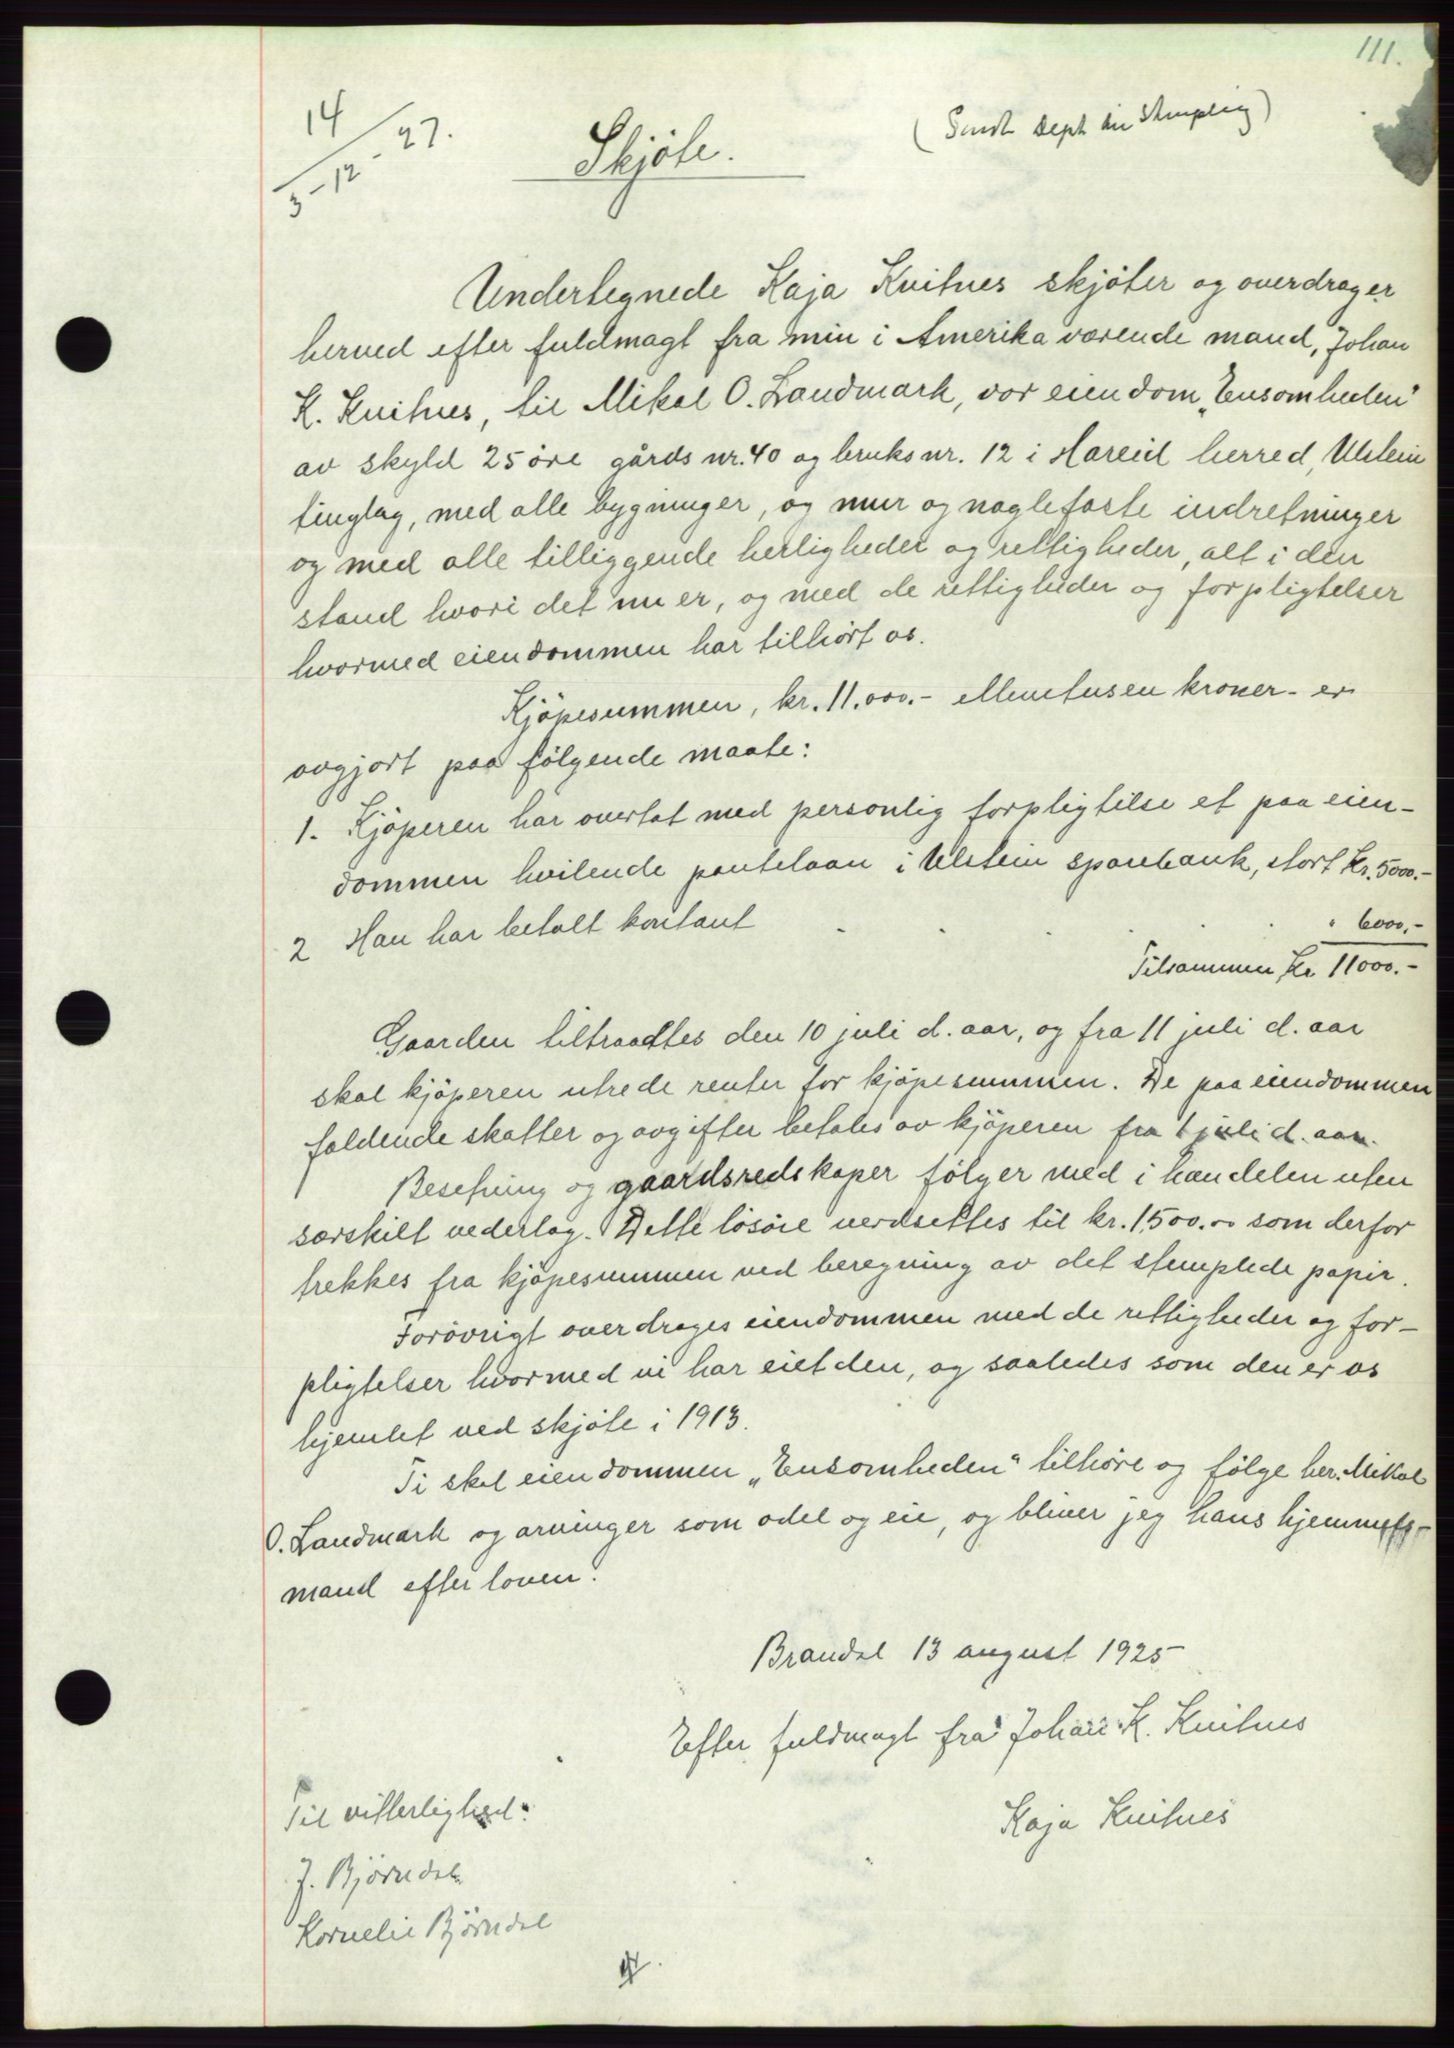 111.
14
3-12-27.
(Sendt Dept til Stempling)
Skjöte.
Undertegnede Kaja Kvitnes skjöter og overdrager
herved efter fuldmagt fra min i Amerika værende mand, Johan
K. Kvitnes, til Mikal O. Landmark, vor eiendom „Ensomheden"
av skyld 25 öre gårds nr. 40 og bruks nr. 12 i Hareid herred, Ulstein
tinglag, med alle bygninger, og mur og naglefaste indretninger
og med alle tilliggende herligheder og rettigheder, alt i den
stand hvori det nu er, og med de rettigheder og forpligtelser
hvormed eiendommen har tilhört os.
Kjöpesummen, kr. 11.000.- elletusen kroner - er
avgjort paa fölgende maate:
1. Kjöperen har overtat med personlig forpligtelse et paa eien-
dommen hvilende pantelaan i Ulstein sparebank, stort Kr. 5000.-
2 Han har betalt kontant " 6000,-
Tilsammen Kr 11000.-
Gaarden tiltraadtes den 10 juli d. aar, og fra 11 juli d. aar
skal kjöperen utrede renter for kjöpesummen. De paa eiendommen
faldende skatter og avgifter betales av kjöperen fra 1 juli d. aar.
Besetning og gaardsredskaper fölger med i handelen uten
særskilt vederlag. Dette lösöre verdsettes til kr. 1500.00 som derfor
trekkes fra kjöpesummen ved beregning av det stemplede papir.
Forövrigt overdrages eiendommen med de rettigheder og for-
pligtelser hvormed vi har eiet den, og saaledes som den er os
hjemlet ved skjöte i 1913.
Ti skal eiendommen „Ensomheden" tilhöre og fölge her. Mikal
O. Landmark og arvinger som odel og eie, og bliver jeg hans hjemmels-
mand efter loven.
Brandal 13 august 1925
Efter fuldmagt fra Johan K. Kvitnes
Kaja Kvitnes
Til vitterlighed:
J. Björndal
Kornelie Björndal